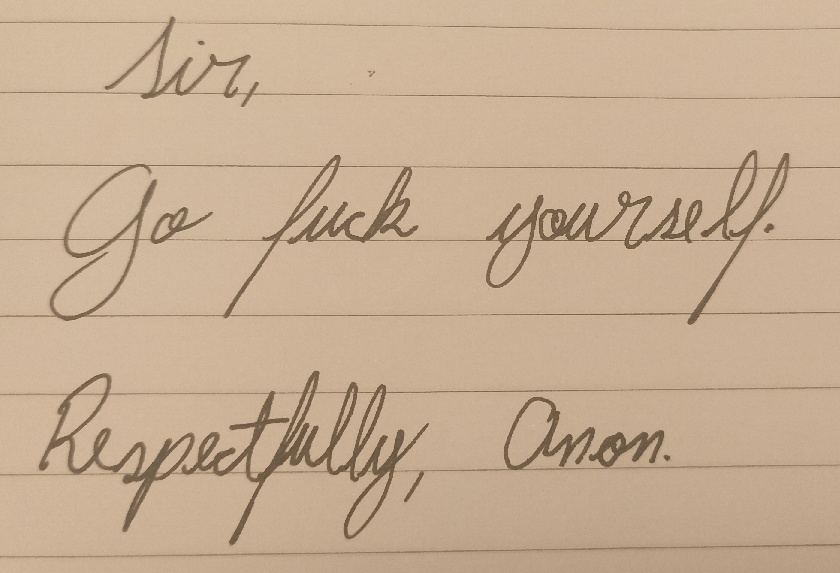 Sir,
Go fuck yourself.
Respectfully, Anon.